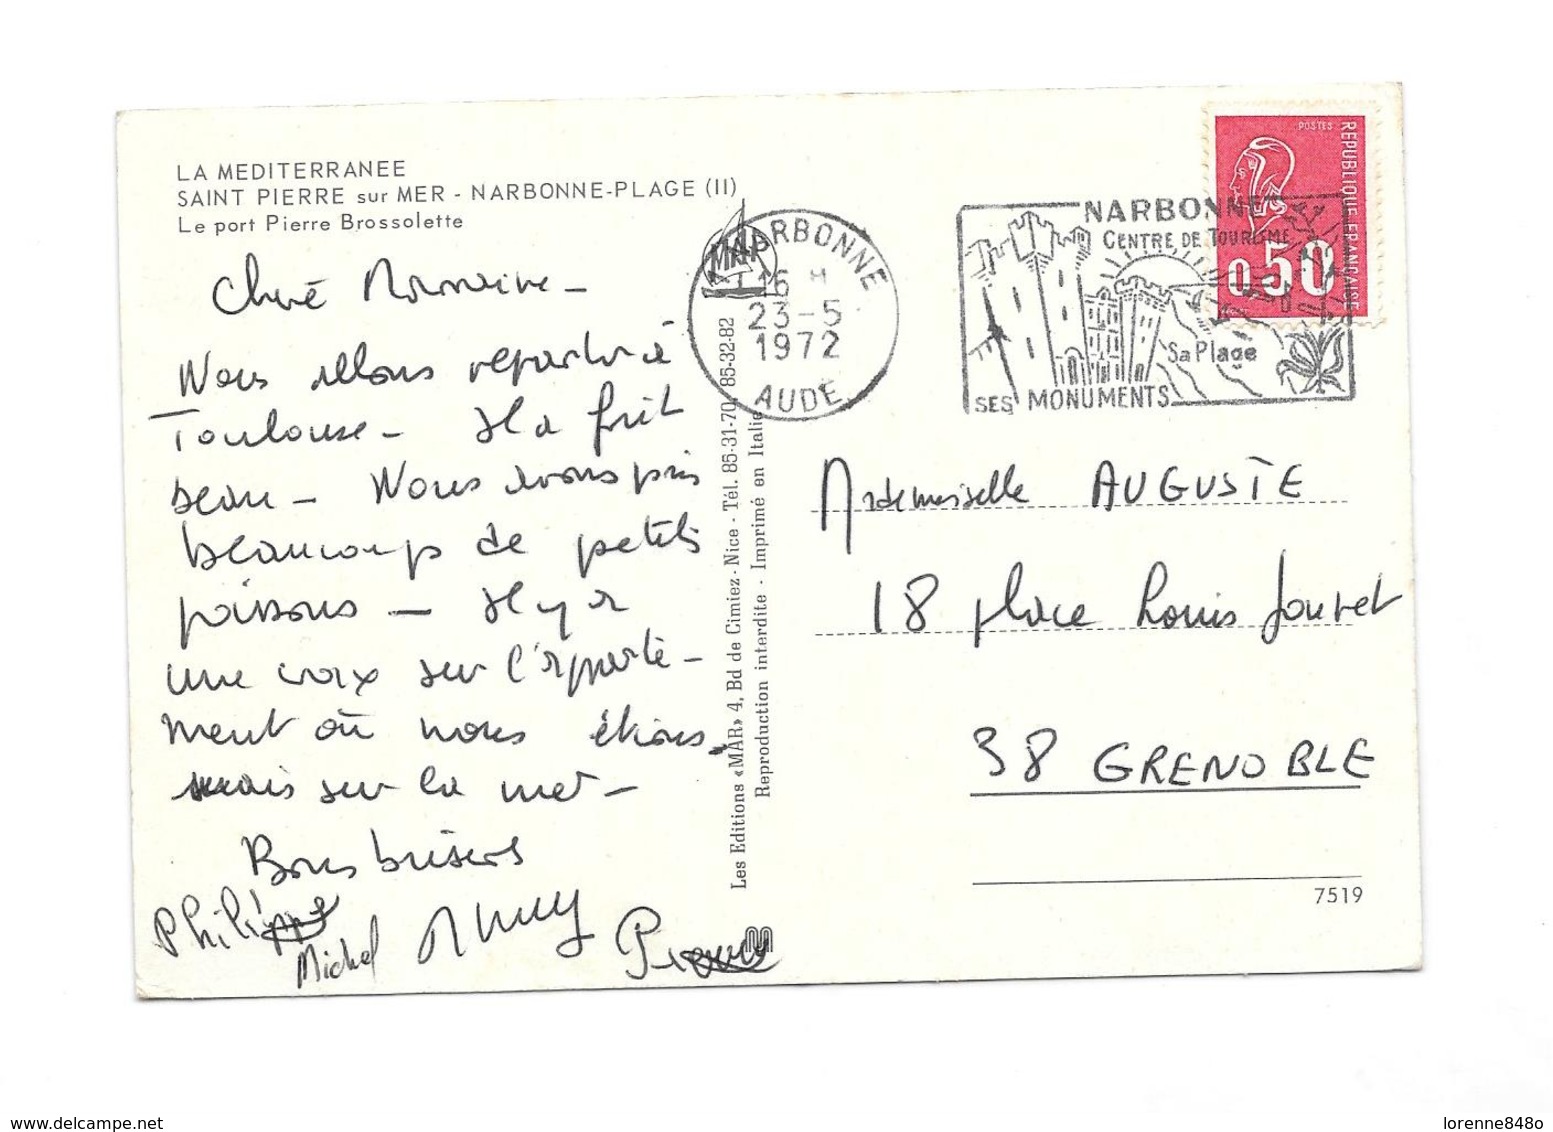 LA MEDITERRANEE
SAINT PIERRE sur MER - NARBONNE-PLAGE (11)
Le port Pierre Brossolette
Nous allons repartir à
Toulouse - Il a fait
beau - Nous avons pris
beaucoup de petits
poissons - Il y a
une croix sur l'apparte-
ment où nous étions.
mais sur la mer -
Bons baisers
Philippe
Michel
Pierre
MAR
NARBONNE
16 H
23-5
1972
AUDE
Les Editions «MAR» 4, Bd de Cimiez - Nice - Tél. 85-31-70, 85-32-82
Reproduction interdite - Imprimé en Italie
NARBONNE
CENTRE DE TOURISME
Sa Plage
SES MONUMENTS
POSTES
REPUBLIQUE FRANÇAISE
0,50
Mademoiselle AUGUSTE
18 place Louis Jouvet
38 GRENOBLE
7519
www.delcampe.net
lorenne848o